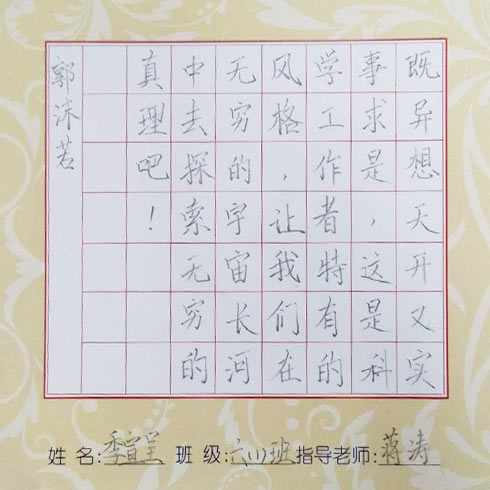 既异想天开又实
事求是，这是科
学工作者特有的
风格，让我们在
无穷的宇宙长河
中去探索无穷的
真理吧！
郭沫若
姓 名:季宣呈 班 级:六(1)班指导老师:蒋涛